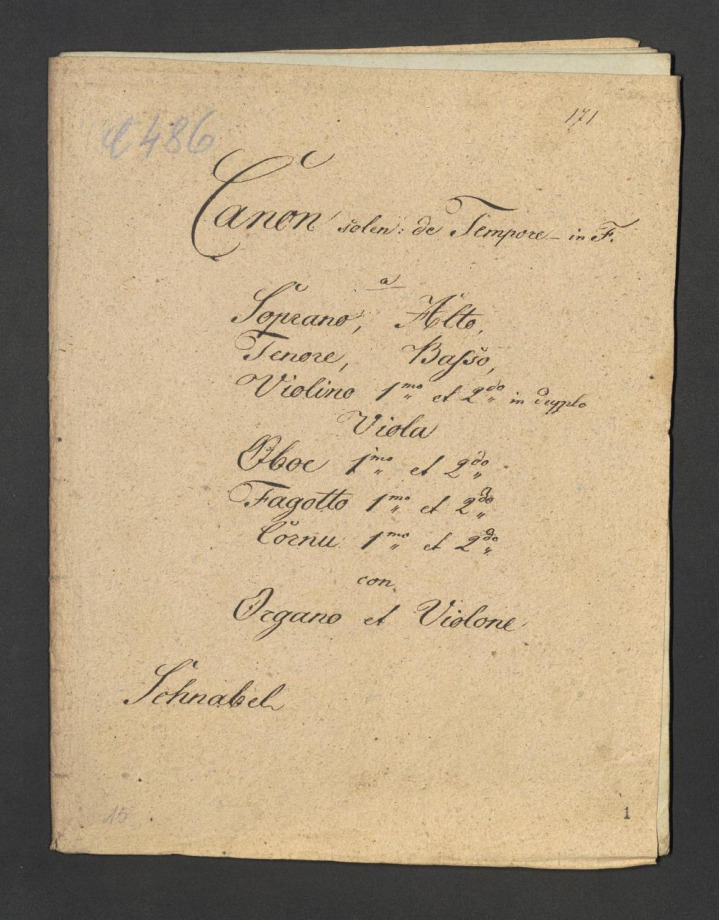 C 486
171
Canon solen: de Tempore in F.
a
Soprano, Alto,
Tenore, Basso,
Violino 1mo et 2do in dupplo
Viola
Oboe 1mo et 2do
Fagotto 1mo et 2do
Cornu 1mo et 2do
con
Organo et Violone
Schnabel
15
1